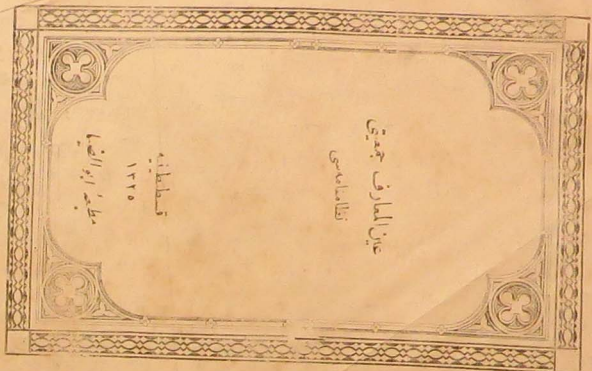 عين المعارف جمعيتى
نظامنامه‌سى
قسطنطينيه
١٣٢٥
مطبعهٔ ابوالضيا